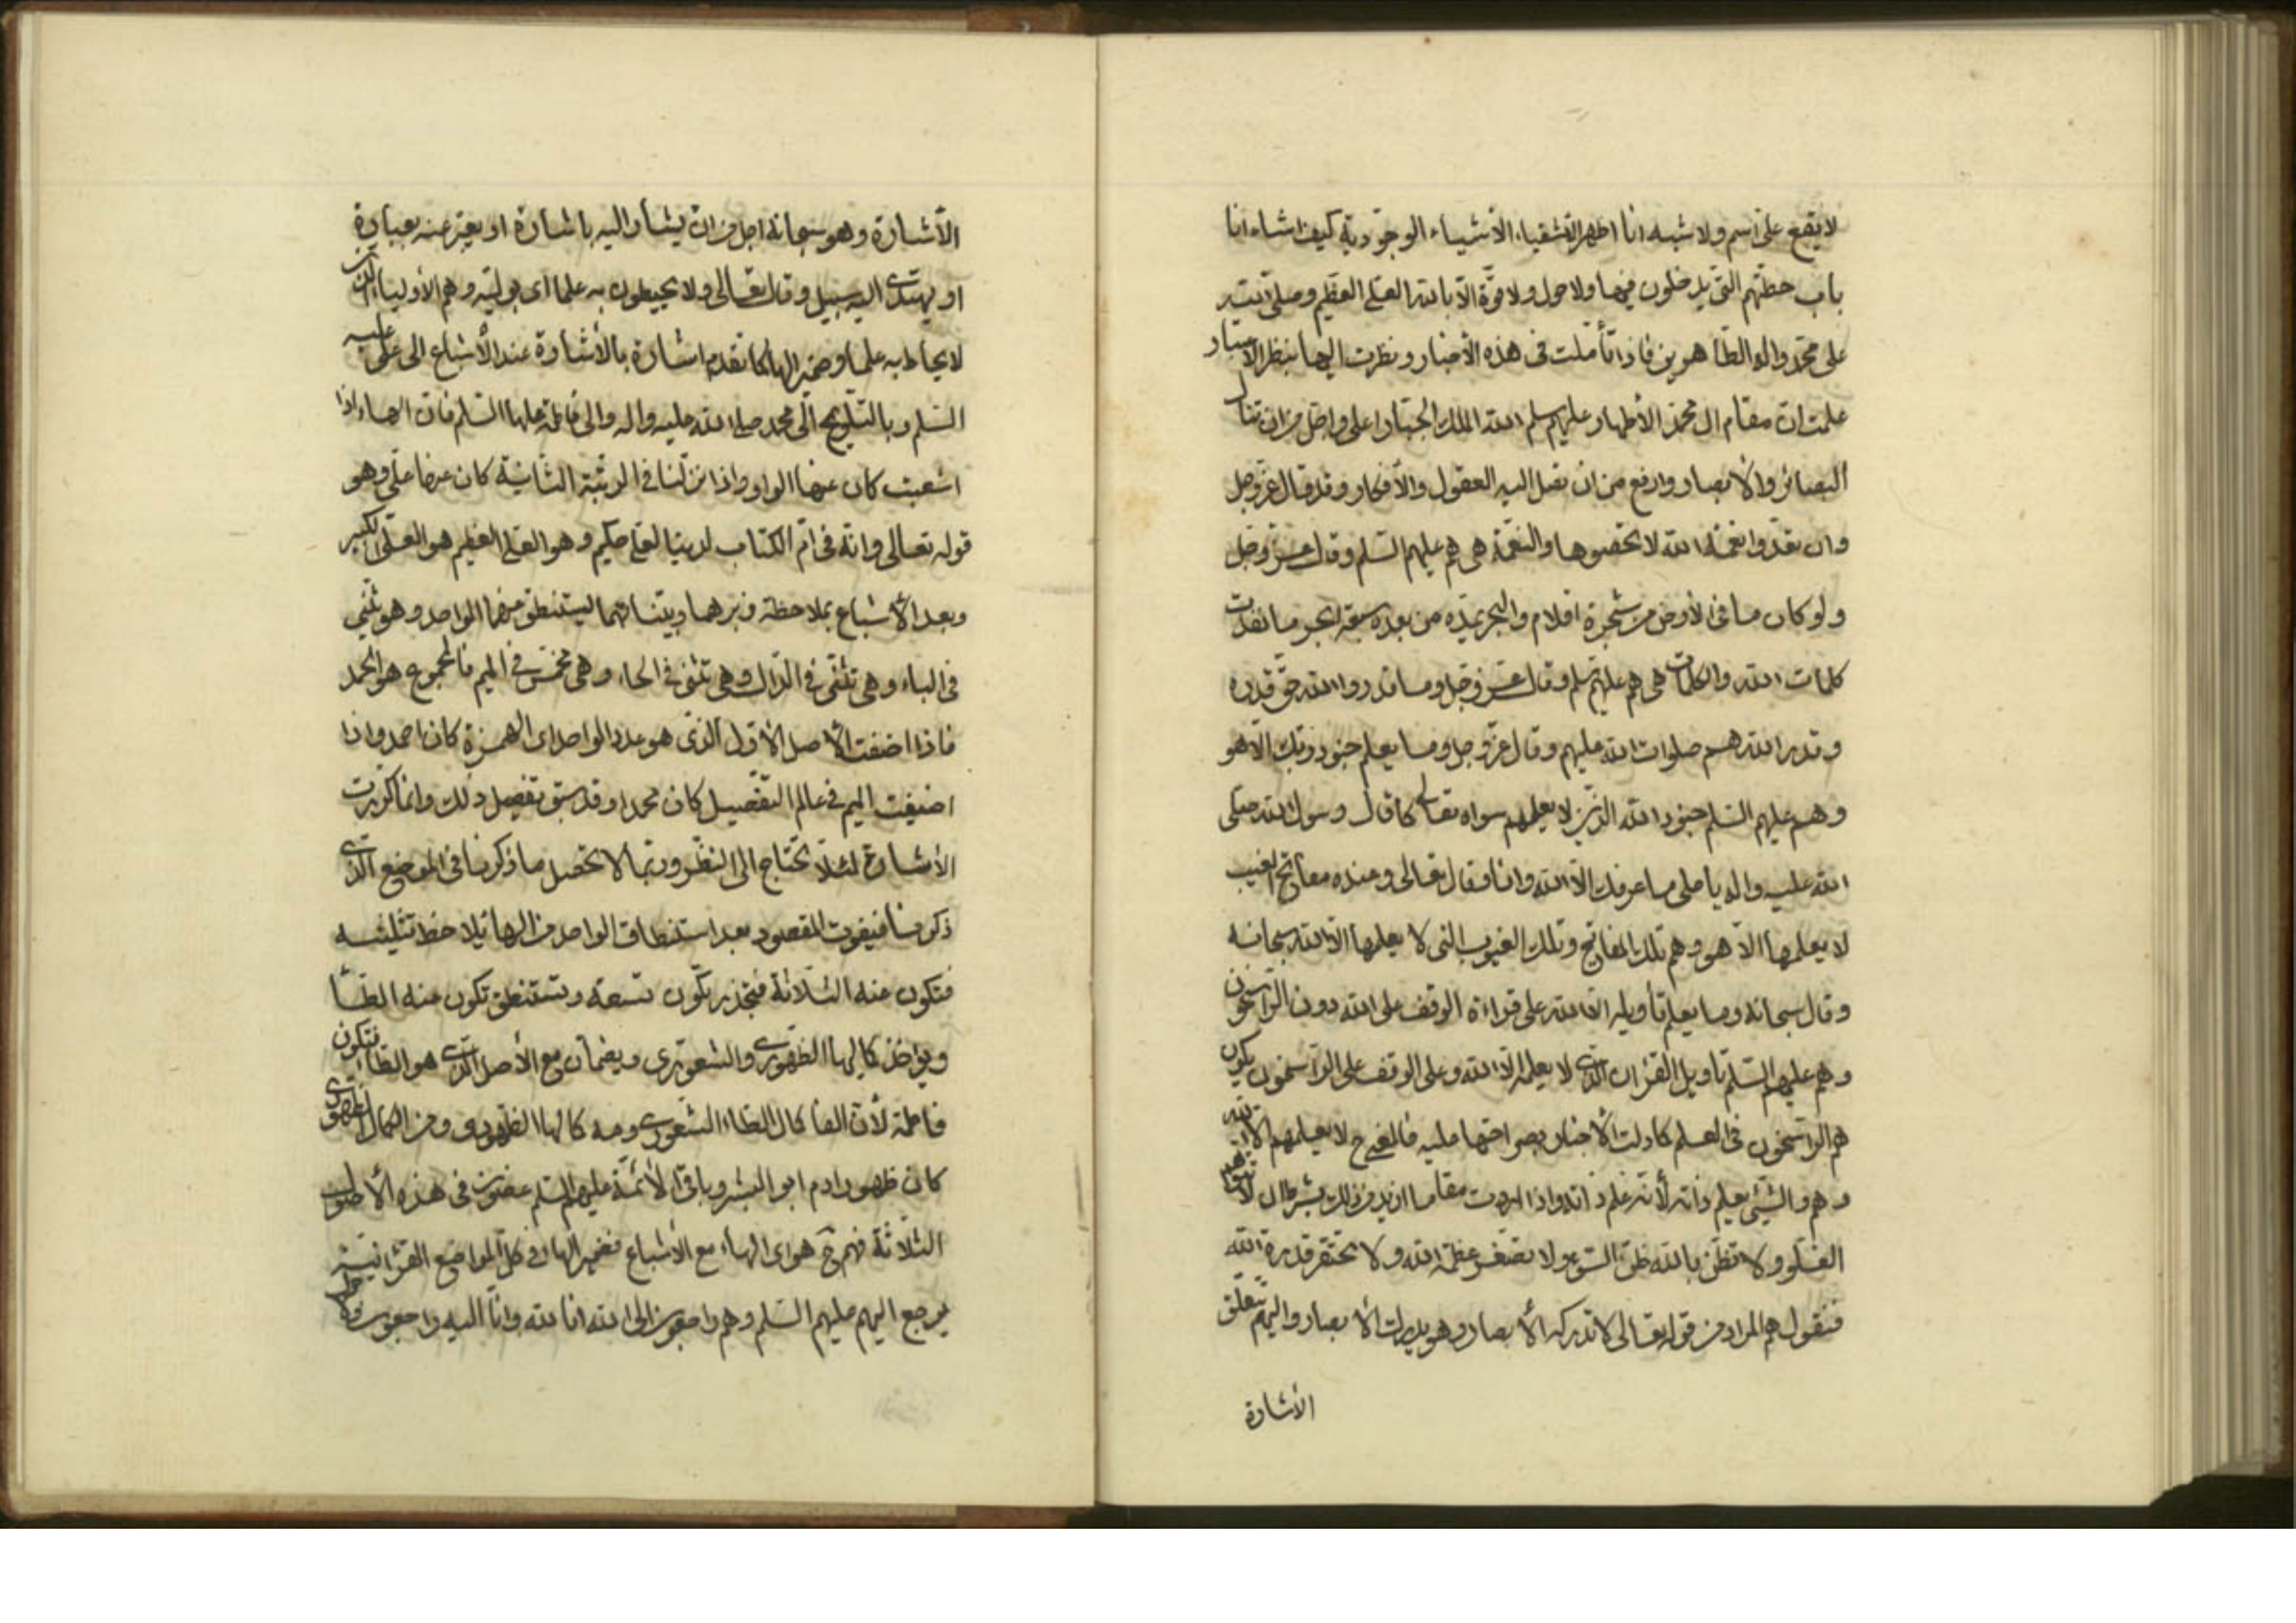 لا يقع على اسم ولا شبه انا اظهر الاشياء الوجودية كيف اشاء انا
باب حطتهم التي يدخلون فيها ولا حول ولا قوة الا بالله العلي العظيم وصلى الله
على محمد واله الطاهرين فاذا تأملت في هذه الأخبار ونظرت اليها بنظر الاعتبار
علمت ان مقام ال محمد الأطهار عليهم سلم الله الملك الجبار اعلى واجل من ان تناله
البصائر والأبصار وارفع من ان تصل اليه العقول والأفكار وقد قال عز وجل
وان تعدوا نعمة الله لا تحصوها والنعمة هي هم عليهم السلم وقال عز وجل
ولو كان ما في الأرض من شجرة اقلام والبحر يمده من بعده سبعة ابحر ما نفدت
كلمات الله والكلمات هي هم عليهم سلم وقال عز وجل وما قدروا الله حق قدره
وقدر الله هم صلوات الله عليهم وقال عز وجل وما يعلم جنود ربك الا هو
وهم عليهم السلم جنود الله الذين لا يعلمهم سواه تعالى كما قال رسول الله صلى
الله عليه واله يا علي ما عرفك الا الله وانا وقال تعالى وعنده مفاتح الغيب
لا يعلمها الا هو وهم تلك المفاتح وتلك الغيوب التي لا يعلمها الا الله سبحانه
وقال سبحانه وما يعلم تأويله الا الله على قراءة الوقف على الله دون الراسخون
وهم عليهم السلم تأويل القران الذي لا يعلمه الا الله وعلى الوقف على الراسخون يكون
هم الراسخون في العلم كما دلت الأخبار بصراحتها عليه فالغير ح لا يعلمهم الا الله
وهم والشيء يعلم ذاته لأنه علم ذاته واذا اردت مقاما ازيد من ذلك بشرط ان لا
الغلو ولا تظن بالله ظن السوء ولا تصغر عظمة الله ولا تحتقر قدرة الله
فنقول هم المراد من قوله تعالى لا تدركه الأبصار وهو يدرك الأبصار واليهم تتعلق
الأشارة
الأشارة وهو سبحانه اجل من ان يشار اليه باشارة او يعبر عنه بعبارة
او يهتدى اليه سبيل وقال تعالى ولا يحيطون به علما اى بوليه وهم الأولياء الذين
لا يحاط به علما وضمير الهاء كما تقدم اشارة بالأشارة عند الأشباع الى علي عليه
السلم وبالتلويح الى محمد صلى الله عليه واله والى فاطمة عليها السلم فان الهاء اذا
اشبعت كان عنها الواو واذا نزلنا في الرتبة الثانية كان عنها علي وهو
قوله تعالى وانه في ام الكتاب لدينا لعلي حكيم وهو العلي العظيم هو العلي الكبير
وبعد الأشباع بملاحظة زبرهما وبيناتهما ليستنطق منهما الواحد وهو تثنى
في الباء وهي تثنى في الدال وهي تثنى في الحاء وهي تخمس في الميم فالمجموع هو الحمد
فاذا اضفت الأصل الأول الذي هو عدد الواحد اى الهمزة كان احمد واذا
اضيفت الميم في عالم التفصيل كان محمدا وقد سبق تفصيل ذلك وانما كررت
الأشارة لئلا تحتاج الى النظر وربما لا تحصل ما ذكرنا في الموضع الذي
ذكرنا فيفوت المقصود بعد استنطاق الواحد من الهاء يلاحظ تثليثه
فتكون منه الثلاثة فتجذر تكون تسعة وتستنطق تكون منه الطاء
ويؤخذ كمالها الظهوري والشعوري ويضمان مع الأصل الذي هو الطاء فتكون
فاطمة لأن الفا كمال الطاء الشعوري ومه كمالها الظهوري ومن الكمال الظهوري
كان ظهور ادم ابو البشر وباقي الأئمة عليهم السلم في هذه الأصول
الثلاثة فهم ح هو اى الهاء مع الأشباع فضمير الهاء في كل المواضع القرانية
يرجع اليهم عليهم السلم وهم راجعون الى الله انا لله وانا اليه راجعون